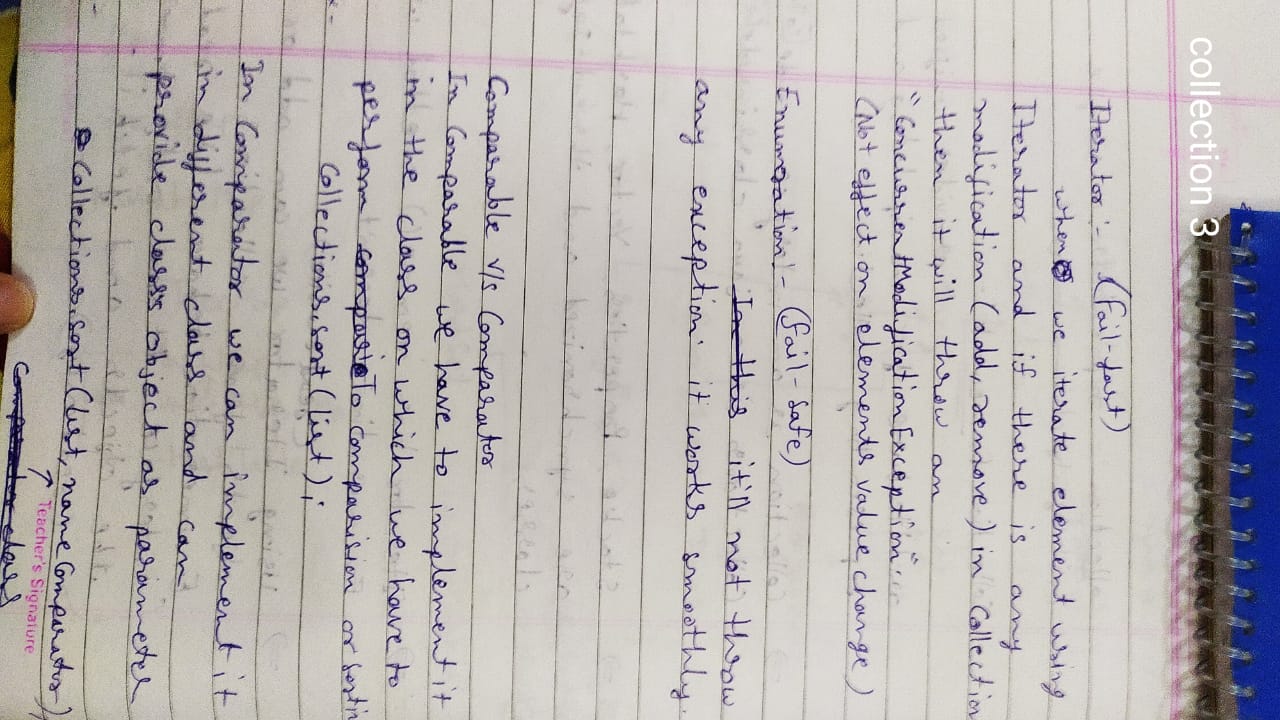 collection 3
Iterator :- (Fail-fast)
when we iterate element using
Iterator and if there is any
modification (add, remove) in Collection
then it will throw an
"ConcurrentModificationException".
(Not effect on elements value change)
Enumration :- (fail-safe)
In this it'll not throw
any exception. it works smoothly.
Comparable v/s Comparator
In Comparable we have to implement it
in the class on which we have to
perform compareTo comparision or sortin
Collections.sort(list);
In Comparator we can implement it
in different class and can
provide class's object as parameter
Collections.sort(list, nameComparator)
Teacher's Signature
class